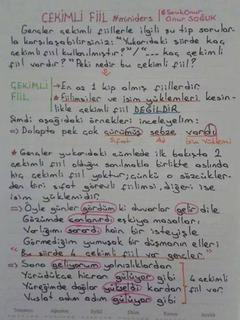 ÇEKİMLİ FİİL Mminiders Onur SOĞUK
Gençler çekimli fiillerle ilgili şu tip sorular-
la karşılaşabilirsiniz: "Yukarıdaki şiirde kaç
çekimli fiil kullanılmıştır?" / "... kaç çekimli
fiil vardır?" Peki nedir bu çekimli fiil?
ÇEKİMLİ FİİL → En az 1 kip almış fiillerdir.
* Fiilimsiler ve isim yüklemleri kesin-
likle çekimli fiil DEĞİLDİR.
Şimdi aşağıdaki örnekleri inceleyelim:
⇒ Dolapta pek çok çürümüş sebze vardı
Sıfat Ad İsim Yüklemi
* Gençler yukarıdaki cümlede ilk bakışta 2
çekimli fiil olduğu sanılmakla birlikte aslında
hiç çekimli fiil yoktur; çünkü o sözcükler-
den biri sıfat görevli fiilimsi, diğeri ise
isim yüklemidir.
⇒ Öyle günler gördüm ki duvarlar gelir dile
Gözümde canlandı eşkıya masalları
Varlığımı sardı hain bir isteyişle
Görmediğim yumuşak bir düşmanın elleri
" Bu şiirde 4 çekimli fiil var gençler "
⇒ Sana geliyorum yalnızlıklardan
Yürüdükçe hicran gülüyor gibi
Yüreğimde dağlar yükseldi kardan
Vuslat adım adım gülüyor gibi
4 çekimli
fiil var